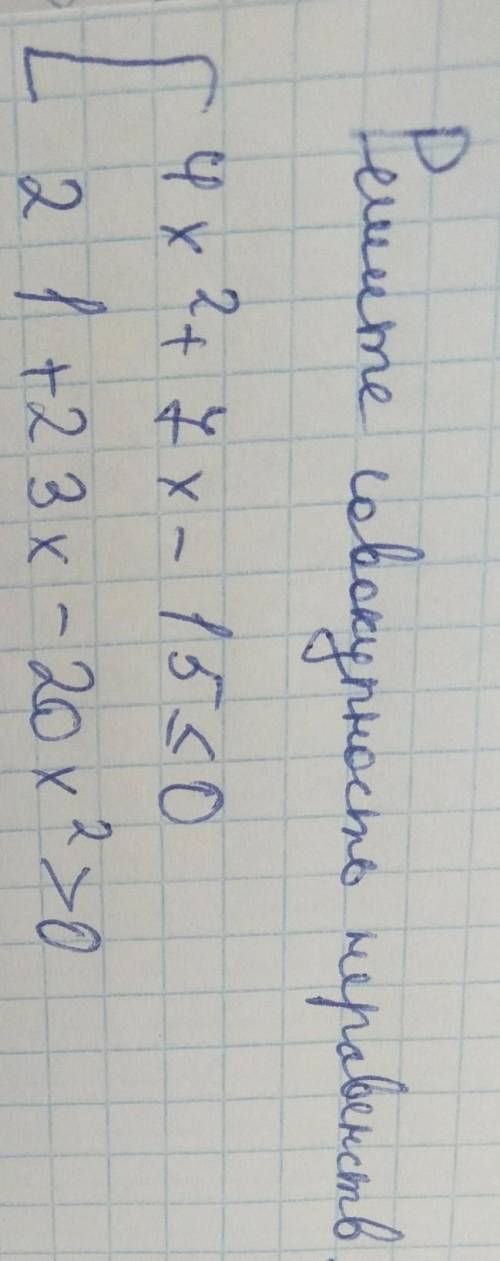 Решите совокупность неравенств
[ 4x² + 7x - 15 ≤ 0
21 + 23x - 20x² > 0